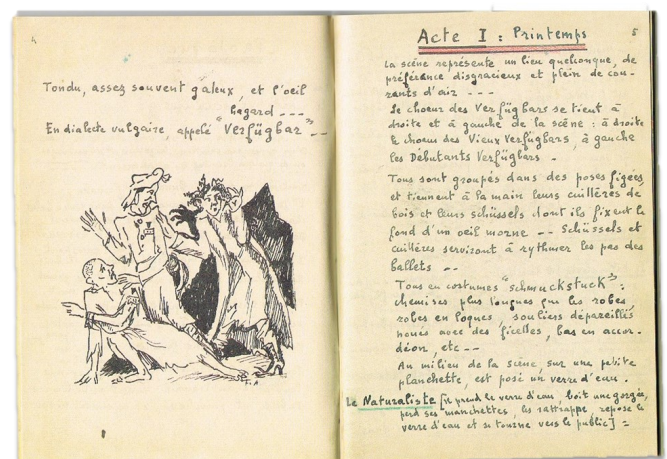 4
Tondu, assez souvent galeux, et l'oeil
hagard ---
En dialecte vulgaire, appelé "Verfügbar" --
F.A
5
Acte I : Printemps
La scène représente un lieu quelconque, de
préférence disgracieux et plein de cou-
rants d'air ---
Le choeur des Verfügbars se tient à
droite et à gauche de la scène : à droite
le choeur des Vieux Verfügbars, à gauche
les Débutants Verfügbars -
Tous sont groupés dans des poses figées,
et tiennent à la main leurs cuillères de
bois et leurs schüssels dont ils fixent le
fond d'un oeil morne -- Schüssels et
cuillères serviront à rythmer les pas des
ballets --
Tous en costumes "schmuckstuck" :
chemises plus longues que les robes,
robes en loques, souliers dépareillés
noués avec des ficelles, bas en accor-
déon, etc --
Au milieu de la scène, sur une petite
planchette, est posé un verre d'eau.
Le Naturaliste [il prend le verre d'eau, boit une gorgée,
perd ses manchettes, les rattrappe, repose le
verre d'eau et se tourne vers le public] =